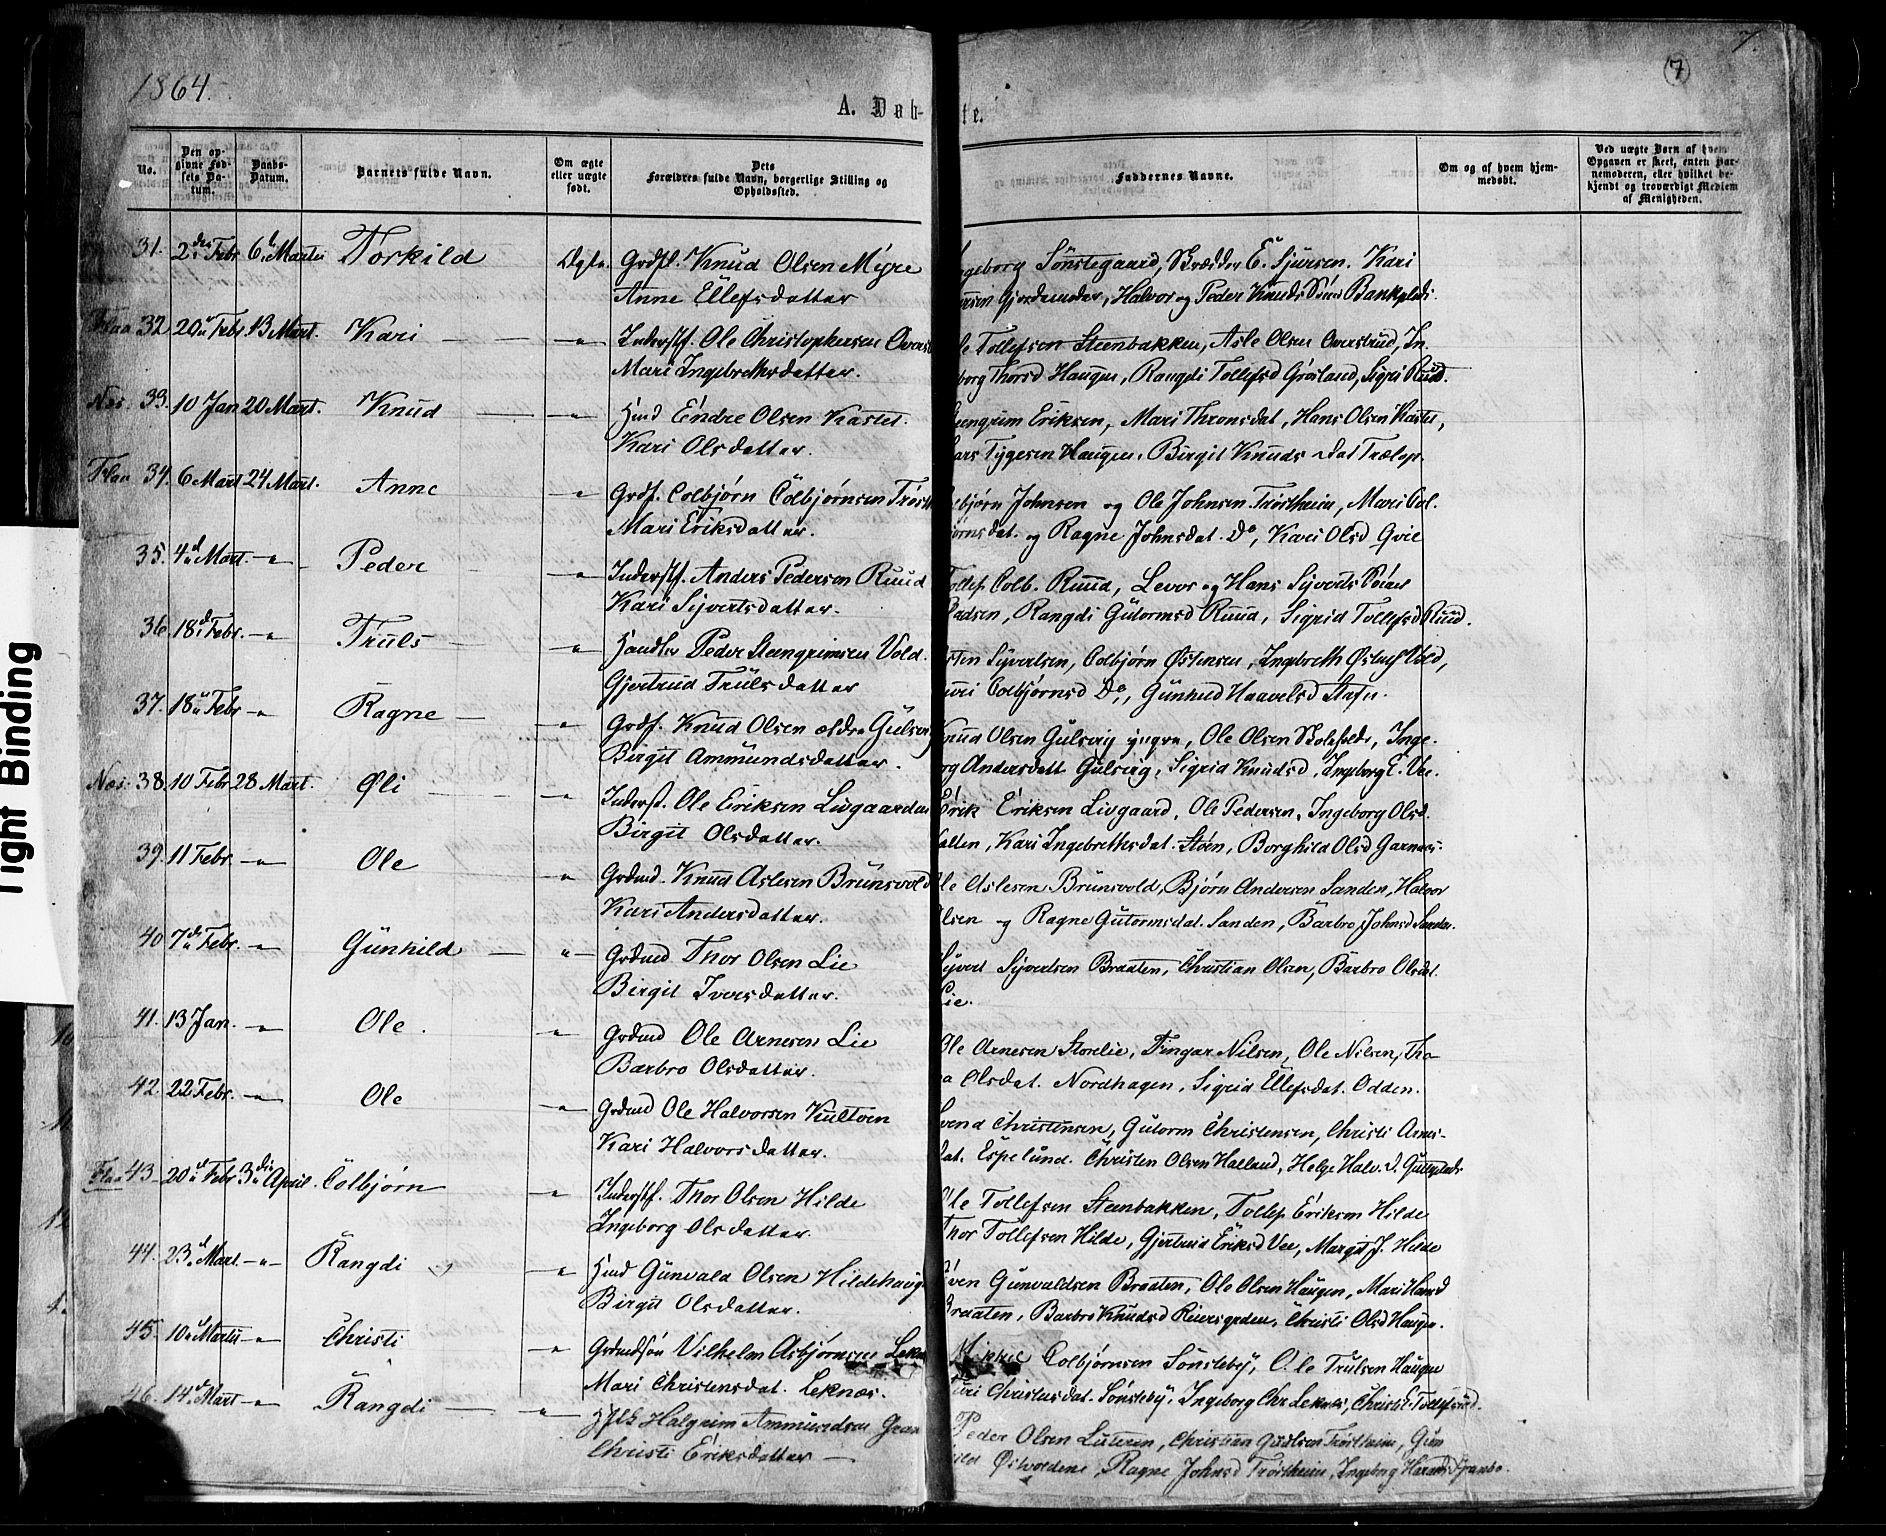 1864.
7.
7
A. Døb-
te.
No.
Den op-
givne Fød-
sels Da-
tum.
Daabs-
Datum.
Barnets fulde Navn.
Om ægte
eller uægte
født.
Dets
Forældres fulde Navn, borgerlige Stilling og
Opholdssted.
Faddernes Navne.
Om og af hvem hjem-
medøbt.
Ved uægte Børn af hvem
Opgaven er skeet, enten Bar-
nemoderen, eller hvilket be-
kjendt og troværdigt Medlem
af Menigheden.
31. 2den Febr 6. Martii Torkild Ægte. Grdf. Knud Olsen Myre
Anne Ellefsdatter
Ingeborg Sønstegaard, Skrædder E. Sjursen. Kari
Gjordemoder, Halvor og Peder Knuds Søn Bankpladi.
Flaa 32. 20 Febr 13 Mart. Kari — „ — Inderstf. Ole Christophersen Overst
Mari Ingebrethsdatter.
Ole Tollefsen Steenbakken, Asle Olsen Overstrud, In.
borg Thorsd Haugen, Rangdi Tollefsd Grøsland, Sigri Ruud.
Nes. 33. 10 Jan 20 Mart. Knud — „ — Hmd Endre Olsen Kastet.
Kari Olsdatter.
Steengrim Eriksen, Mari Thronsdat, Hans Olsen Kastet,
Lars Tygesen Haugen, Birgit Knudsdat Trælop.
Flaa 34. 6 Mart 24 Mart. Anne — „ — Grdf. Colbjørn Colbjørnsen Trøsth
Mari Eriksdatter.
Colbjørn Johnsen og Ole Johnsen Trøstheim, Mari Col.
bjørnsdat. og Ragne Johnsdat. Do, Kari Olsd Gvie
35. 4d Mart. — „ — Peder — „ — Inderstf. Anders Pedersen Ruud
Kari Syvertsdatter.
Tollef Colb. Ruud, Levor og Hans Syverts Søner
Rangdi Gutormsd Ruud, Sigrid Tollefsd Ruud.
36. 18d Febr. — „ — Truls — „ — Handler Peder Steengrimsen Vold.
Gjertrud Trulsdatter
Østen Syvertsen, Colbjørn Østensen, Ingebreth Østens Vold,
Guri Colbjørnsd Do, Gunhild Haavelsd Stafn.
37. 18 Febr — „ — Ragne — „ — Grdf. Knud Olsen ældre Gulsvig
Birgit Ammundsdatter.
Knud Olsen Gulsvig yngre, Ole Olsen Skolefoldr, Inge.
borg Andersdatt Gulsvig, Sigrid Knudsd, Ingeborg E. Vee.
Nes. 38. 10 Febr 28 Mart. Øli — „ — Inderst. Ole Eriksen Livgaardei
Birgit Olsdatter.
Erik Eriksen Livgaard, Ole Pedersen, Ingeborg Olsd.
Kari Ingebrethsdat. Støen, Borghild Olsd Garnaas.
39. 11 Febr. — „ — Ole — „ — Grdmd. Knud Aslesen Brunsvold
Kari Andersdatter.
Ole Aslesen Brunsvold, Bjørn Andersen Sanden, Halvor
Olsen og Ragne Gutormsdat. Sanden, Barbro Johnsd Sanden.
40. 7de Febr. — „ — Gunhild — „ — Grdmd Thor Olsen Lie
Birgit Iversdatter.
Syvert Syvertsen Braaten, Christian Olsen, Barbro Olsdt.
Lie.
41. 13 Jan. — „ — Ole. — „ — Grdmd Ole Arnesen Lie
Barbro Olsdatter.
Ole Arnesen Storelie, Fingar Nilsen, Ole Nilsen, Tho
ra Olsdat. Nordhagen, Sigrid Ellefsdat. Odden.
42. 22 Febr. — „ — Ole — „ — Grdmd Ole Halvorsen Kultoen
Kari Halvorsdatter.
Svend Christensen, Gutorm Christensen, Christi Arnes-
dat. Espelund. Christen Olsen Halland, Helge Halv. d.
Flaa 43. 20d Febr 3die April. Colbjørn — „ — Inderstf. Thor Olsen Hilde
Ingeborg Olsdatter.
Ole Tollefsen Steenbakken, Tollef Eriksen Hilde
Thor Tollefsen Hilde, Gjertrud Eriksd Vee, Margit J. Hilde
44. 23d Mart. — „ — Rangdi — „ — Hmd Gunvald Olsen Hildehauge
Birgit Olsdatter.
Sven Gunvaldsen Braaten, Ole Olsen Haugen, Mari Hansd
Braaten, Barbro Knudsd Reiersgrden, Christi Olsd Haugen.
45. 10d Martii — „ — Christi — „ — Grdmdsøn Vilhelm Asbjørnsen Lekn
Mari Christensdat. Leknæs.
Mikkel Colbjørnsen Sønsteby, Ole Trulsen Haugen
Guri Christensdat. Sønsteby, Ingeborg Chr. Leknæs, Christi E. Tollefsrud.
46. 14d Mart — „ — Rangdi — „ — Halgrim Ammundsen Gran
Christi Eriksdatter —
Peder Olsen Literen, Christian Gudlsen Trøstheim, Gun
hild Østvoldene, Ragne Johnsd Trøstheim, Ingeborg
Tight Binding